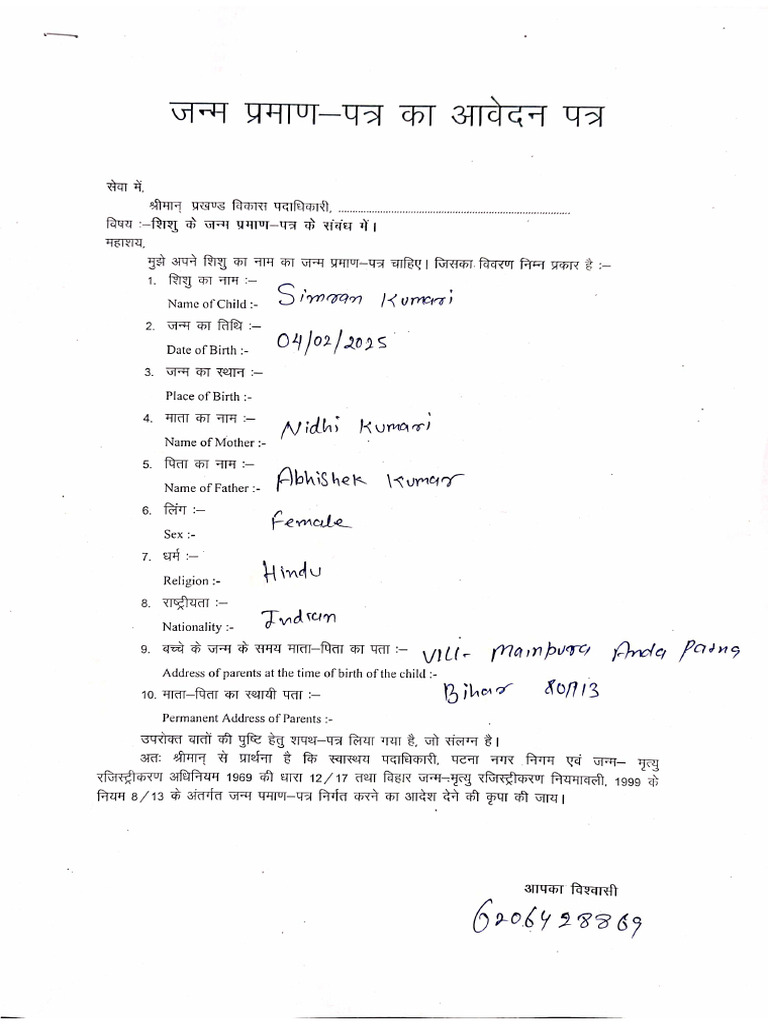 जन्म प्रमाण–पत्र का आवेदन पत्र
सेवा में,
श्रीमान् प्रखण्ड विकास पदाधिकारी, ....................................................................
विषय :–शिशु के जन्म प्रमाण–पत्र के संबंध में।
महाशय,
मुझे अपने शिशु का नाम का जन्म प्रमाण–पत्र चाहिए। जिसका विवरण निम्न प्रकार है :–
1. शिशु का नाम :–
Name of Child :- Simran Kumari
2. जन्म का तिथि :–
Date of Birth :- 04/02/2025
3. जन्म का स्थान :–
Place of Birth :-
4. माता का नाम :–
Name of Mother :- Nidhi Kumari
5. पिता का नाम :–
Name of Father :- Abhishek Kumar
6. लिंग :–
Sex :- Female
7. धर्म :–
Religion :- Hindu
8. राष्ट्रीयता :–
Nationality :- Indian
9. बच्चे के जन्म के समय माता–पिता का पता :– Vill- Mainpura Anda Patna
Address of parents at the time of birth of the child :-
Bihar
10. माता–पिता का स्थायी पता :–
Permanent Address of Parents :-
उपरोक्त बातों की पुष्टि हेतु शपथ–पत्र लिया गया है, जो संलग्न है।
अतः श्रीमान् से प्रार्थना है कि स्वास्थय पदाधिकारी, पटना नगर निगम एवं जन्म– मृत्यु
रजिस्ट्रीकरण अधिनियम 1969 की धारा 12/17 तथा विहार जन्म–मृत्यु रजिस्ट्रीकरण नियमावली, 1999 के
नियम 8/13 के अंतर्गत जन्म पमाण–पत्र निर्गत करने का आदेश देने की कृपा की जाय।
आपका विश्वासी
6206428869